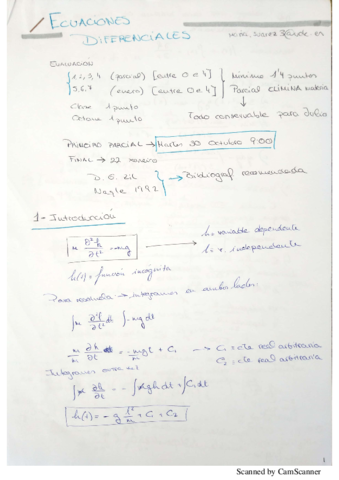 ECUACIONES
DIFERENCIALES
EVALUACIÓN
1,2,3,4 (parcial) [entre 0 a 4]
5,6,7 (enero) [entre 0 a 4]
Mínimo 1'4 puntos
Parcial ELIMINA materia
Clase 1 punto
Octave 1 punto
Todo conservable para Julio
PRIMERO PARCIAL → Martes 30 Octubre 9:00
FINAL → 22
D. G. Zill
Nagle 1992
→ Bibliograf recomendada
1- Introducción
m ∂²h/∂t² = -mg
h = variable dependiente
t = v. independiente
h(t) = función incógnita
Para resolverla → integramos en ambos lados:
∫m ∂²h/∂t² dt ∫-mg dt
m ∂h/∂t = -mgt + C₁ → C₁ = cte real arbitraria
C₂ = cte real arbitraria
Integramos otra vez
h(t) = -g t²/2 + C₁ + C₂
1
Scanned by CamScanner